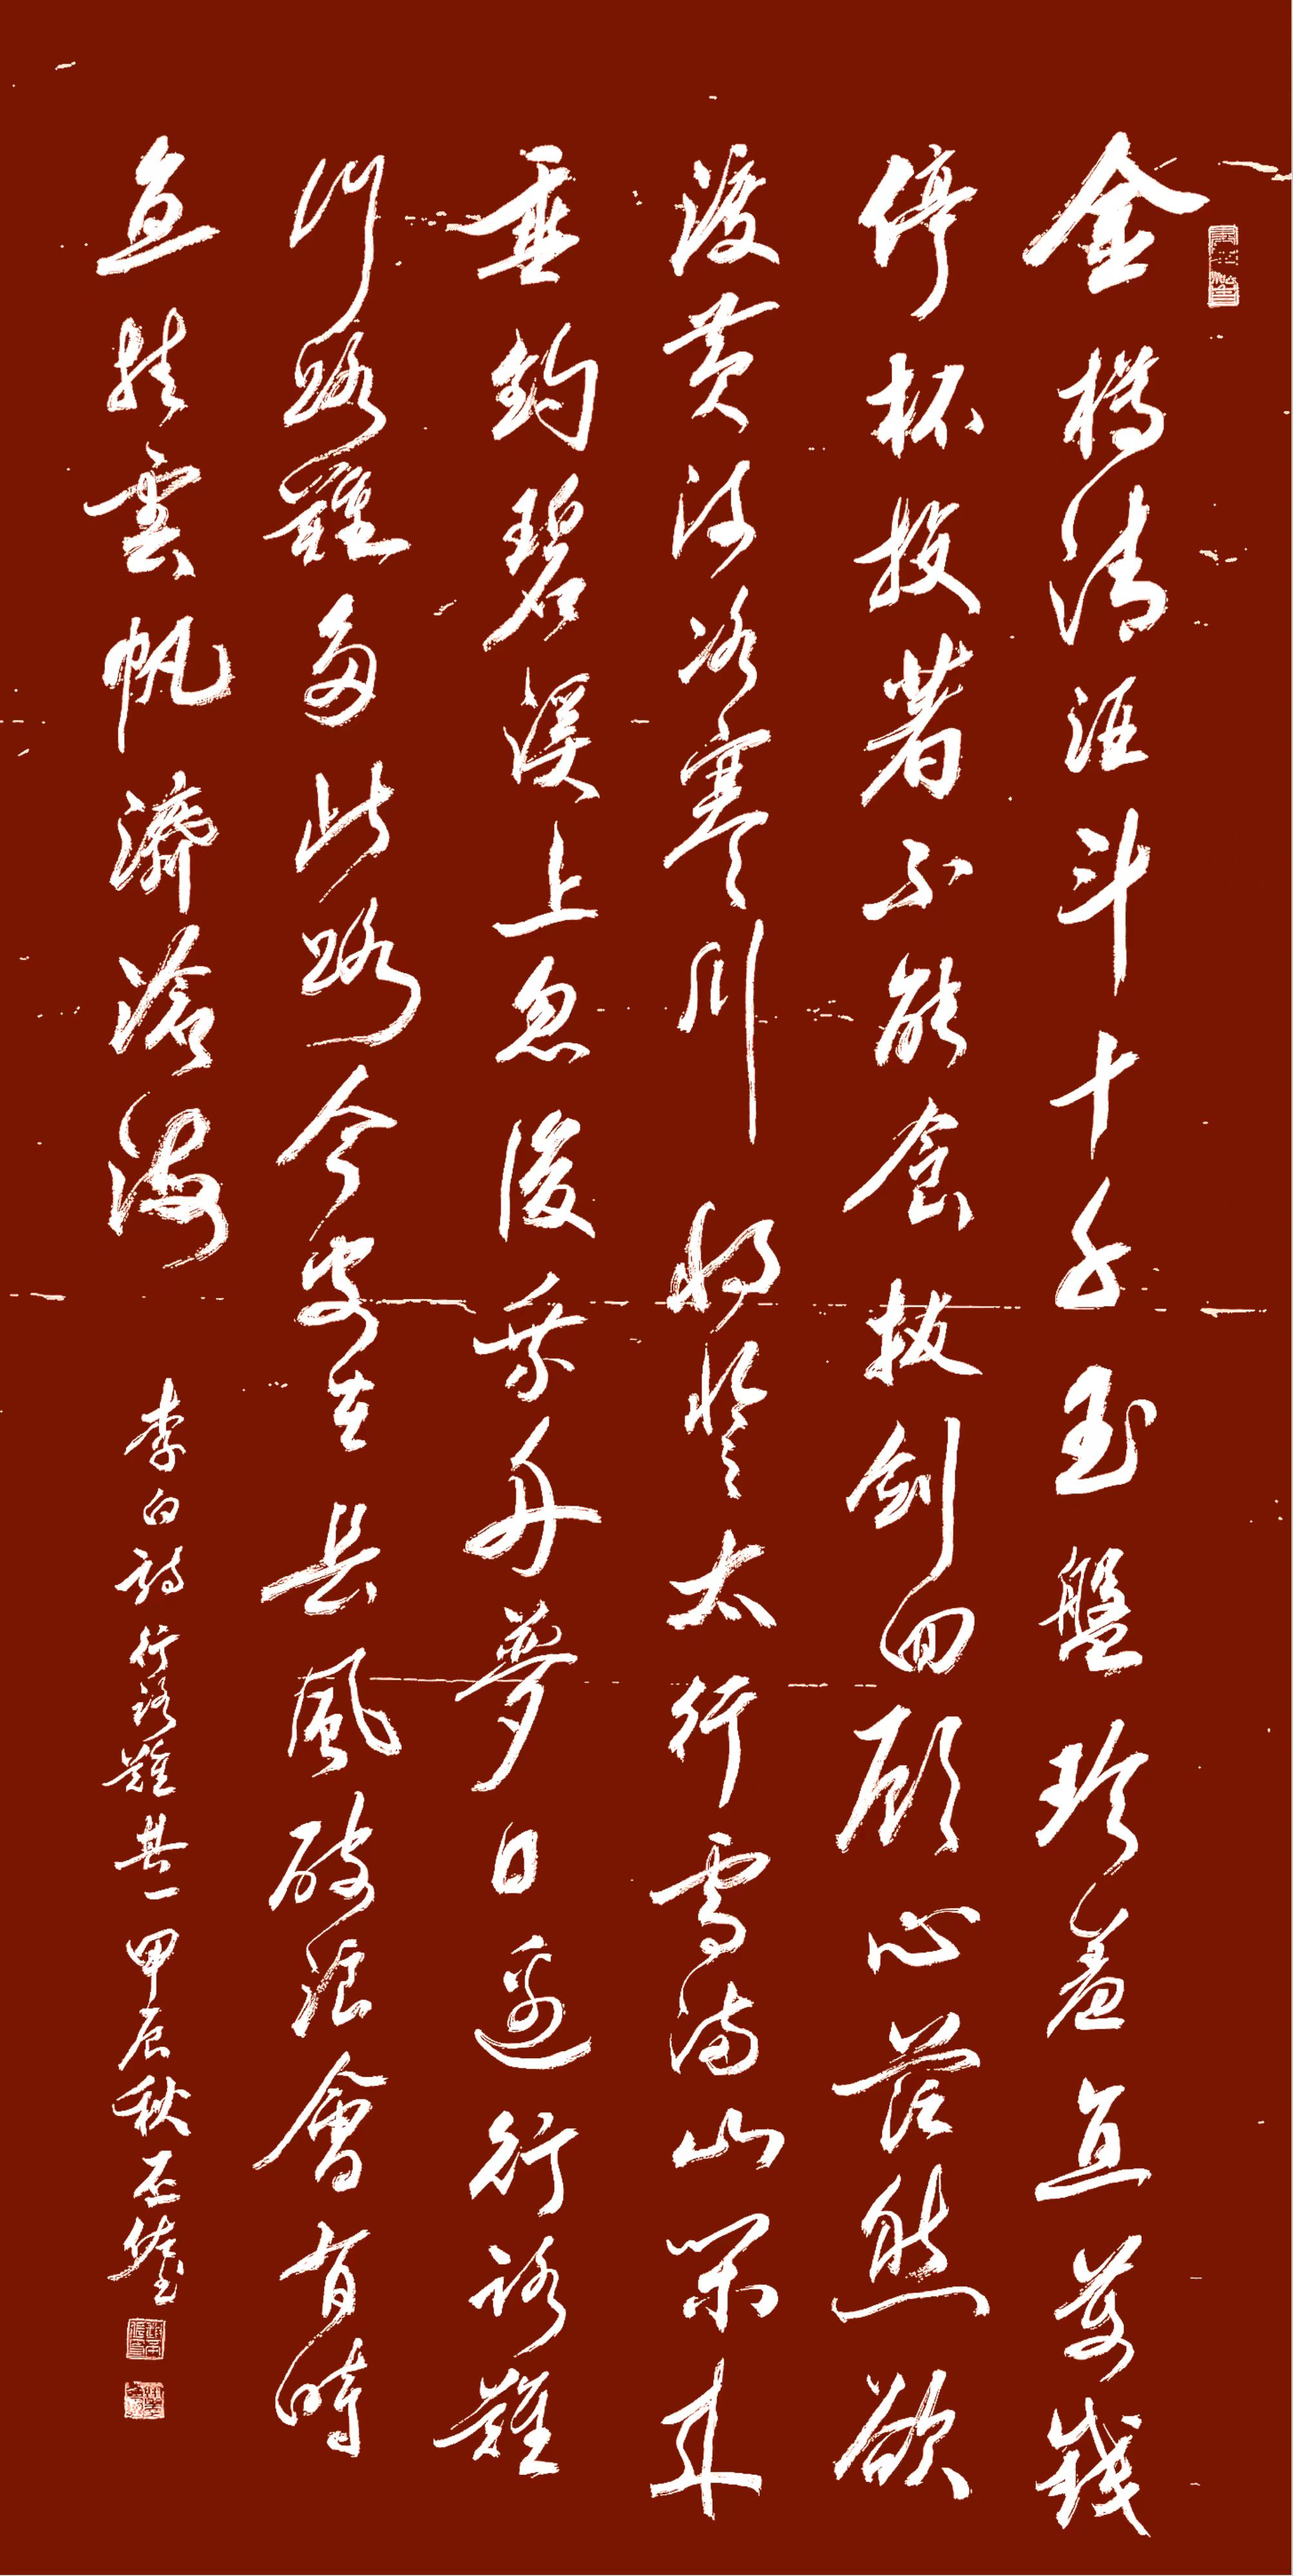 金樽清酒斗十千玉盤珍羞直萬錢
停杯投著不能食拔劍四顧心茫然欲
渡黄河冰塞川將登太行雪滿山閑來
垂釣碧溪上忽復乘舟夢日邊行路難
行路難多歧路今安在長風破浪會有時
直挂雲帆濟滄海
李白詩行路難其一甲辰秋